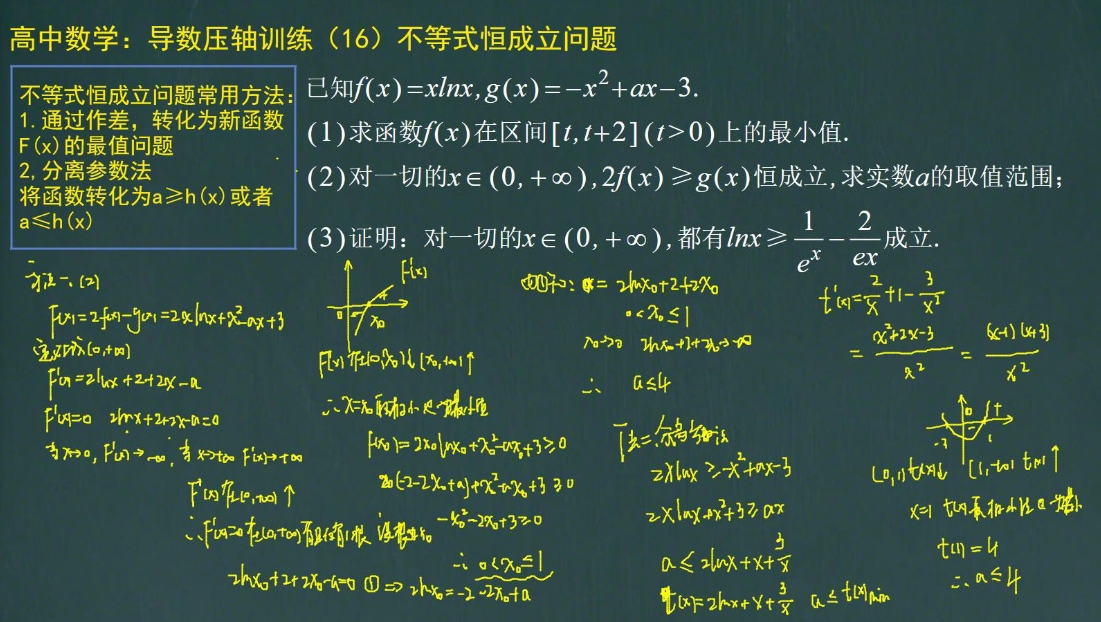 高中数学：导数压轴训练（16）不等式恒成立问题
不等式恒成立问题常用方法：
1.通过作差，转化为新函数
F(x)的最值问题
2,分离参数法
将函数转化为a≥h(x)或者
a≤h(x)
已知f(x)=xlnx,g(x)=-x²+ax-3.
(1)求函数f(x)在区间[t,t+2](t>0)上的最小值.
(2)对一切的x∈(0,+∞),2f(x)≥g(x)恒成立,求实数a的取值范围;
(3)证明：对一切的x∈(0,+∞),都有lnx≥1/eˣ-2/ex成立.
方法一、(2)
F(x)=2f(x)-g(x)=2xlnx+x²-ax+3
定义域(0,+∞)
F'(x)=2lnx+2+2x-a
F'(x)=0 2lnx+2+2x-a=0
当x→0,F'(x)→-∞,当x→+∞ F'(x)→+∞
F'(x)在(0,+∞)↑
∴F'(x)=0在(0,+∞)有且仅有1根
2lnx₀+2+2x₀-a=0 ① ⇒ 2lnx₀=-2-2x₀+a
F'(x)
0
x₀
F(x)在(0,x₀)↓(x₀,+∞)↑
∴x=x₀
F(x₀)=2x₀lnx₀+x₀²-ax₀+3≥0
x₀(-2-2x₀+a)+x₀²-ax₀+3≥0
-x₀²-2x₀+3≥0
∴0<x₀≤1
a=2lnx₀+2+2x₀
0<x₀≤1
x₀→0 2lnx₀+2+2x₀→-∞
∴ a≤4
法二:
2xlnx≥-x²+ax-3
2xlnx+x²+3≥ax
a≤2lnx+x+3/x
t(x)=2lnx+x+3/x a≤t(x)min
t'(x)=2/x+1-3/x²
=(x²+2x-3)/x²=(x-1)(x+3)/x²
-3
1
(0,1)t(x)↓ (1,+∞)t(x)↑
t(1)=4
∴a≤4